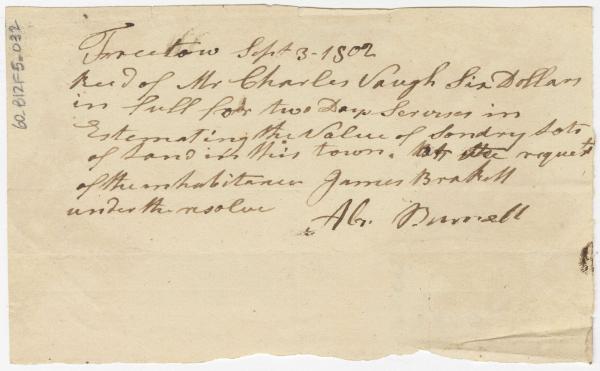 Freetow Sept 3-1802
Recd of Mr Charles Vaugh Six Dollars
in full for two Days Servises in
Estemating the Value of Sondry Lots
of Land in this town. At the request
of the inhabitance James Brakett
under the resolve
Abr. Burrell
60.B12F5_032